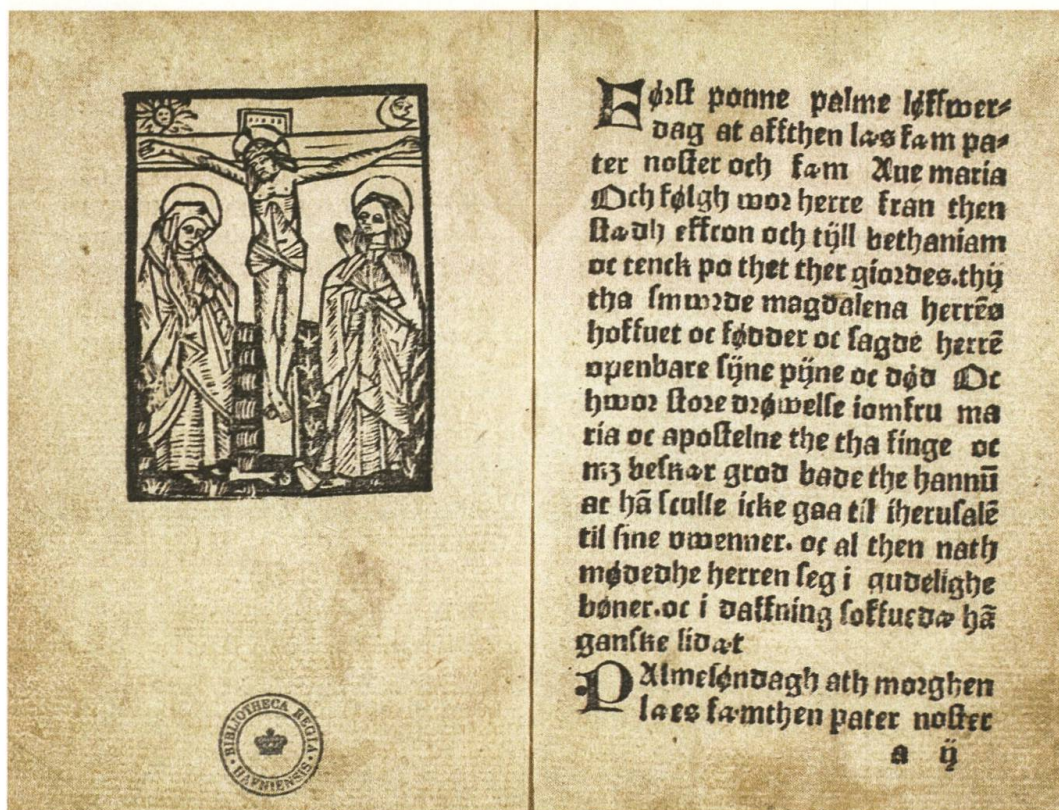 BIBLIOTHECA REGIA HAFNIENSIS
Førſt ponne palme løffwer⸗
dag at affthen læs fæm pa⸗
ter noſter och fæm Aue maria
Och følgh wor herre fran then
ſtædh effron och tijll bethaniam
oc tenck po thet ther giordes. thij
tha ſmwrde magdalena herrēs
hoffuet oc fødder oc ſagde herrē
openbare ſijne pijne oc død Oc
hwor ſtore drøwelſe iomfru ma
ria oc apoſtelne the tha finge oc
mꝫ beſkær grod bade the hannū
at hā ſculle icke gaa til iheruſalē
til ſine vwenner. oc al then nath
mødedhe herren ſeg i gudelighe
bøner. oc i daffning ſoffuedæ hā
ganſke lidæt
PAlmeſøndagh ath morghen
laes fæmthen pater noſter
a ij